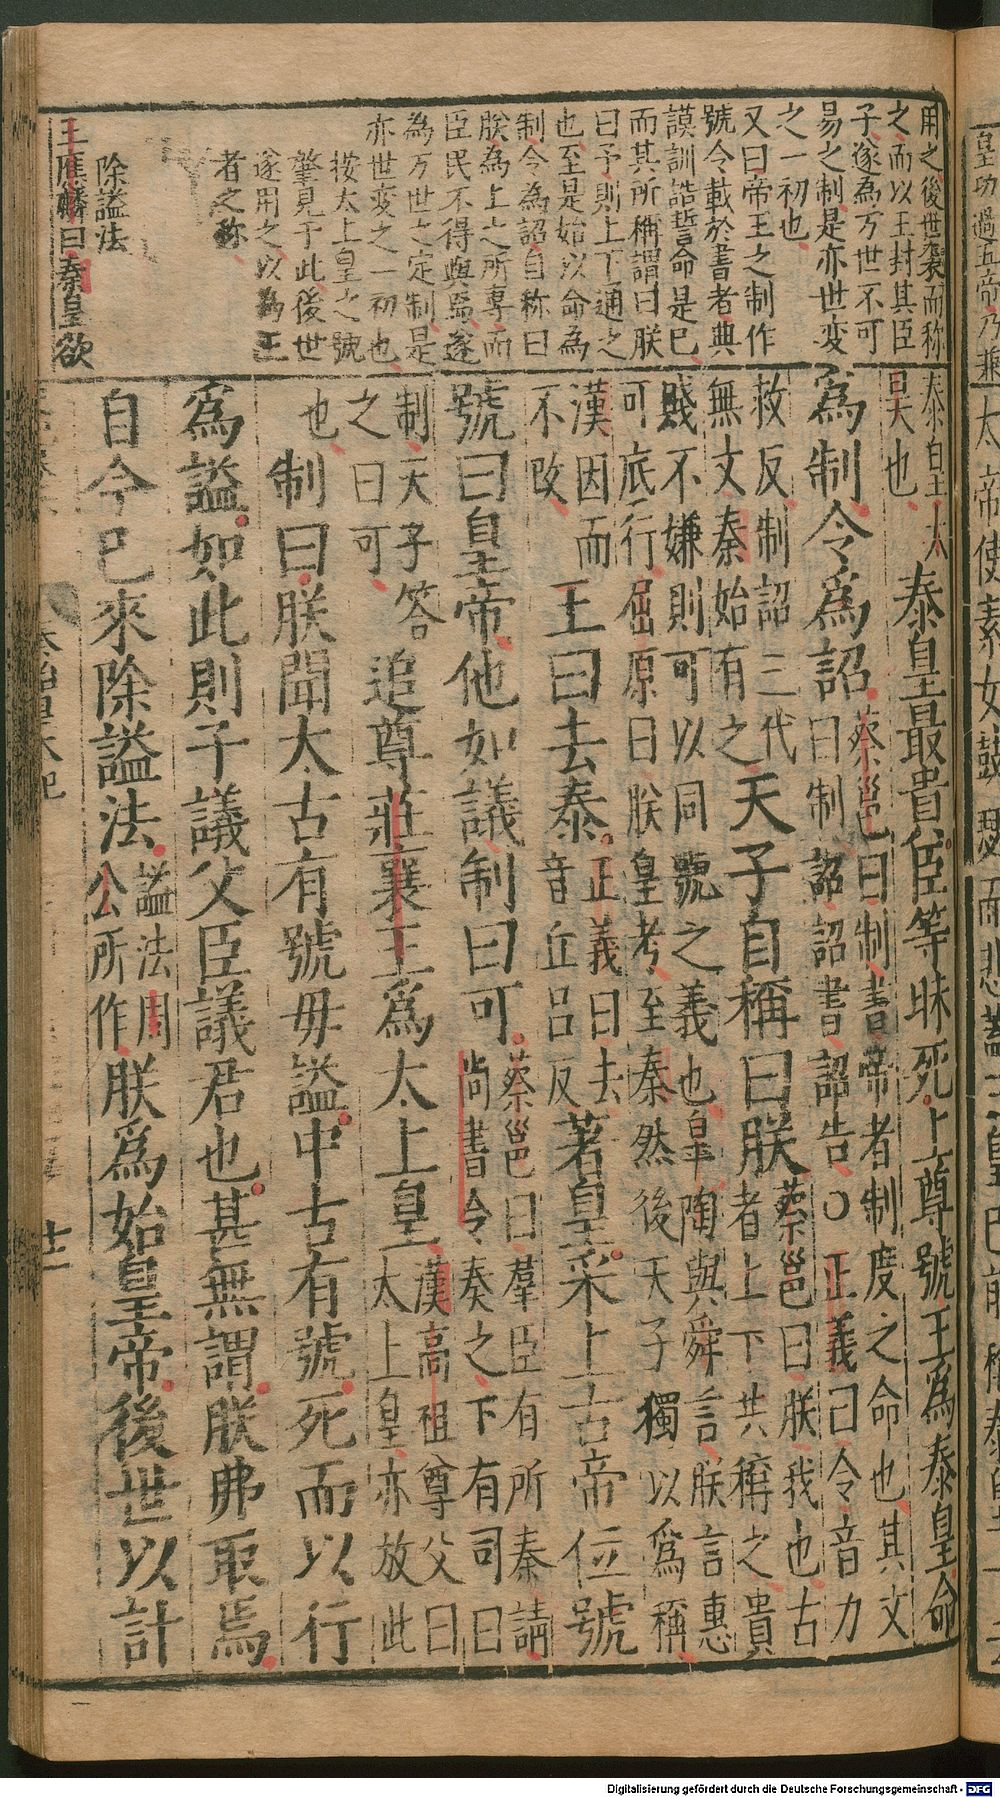 用之後世襲而称
之而以王封其臣
子遂為万世不可
易之制是亦世变
之一初也
又曰帝王之制作
號令載於書者典
謨訓誥誓命是已
而其所稱謂曰朕
曰予則上下通之
也至是始以命為
制令為詔自称曰
朕為上之所專而
臣民不得與焉遂
為万世之定制是
亦世变之一初也
按太上皇之號
肇見于此後世
遂用之以為王
者之称
除謚法
王應麟曰秦皇欲
泰皇太
昊也
泰皇最貴臣等昧死上尊號王為泰皇命
為制令為詔
蔡邕曰制書帝者制度之命也其文
曰制詔詔書詔告○正義曰令音力
政反制詔三代
無文秦始有之
天子自稱曰朕
蔡邕曰朕我也古
者上下共稱之貴
賤不嫌則可以同號之義也皐陶與舜言朕言惠
可底行屈原曰朕皇考至秦然後天子獨以為稱
漢因而
不改
王曰去泰
正義曰去
音丘呂反
著皇采上古帝位號
號曰皇帝他如議制曰可
蔡邕曰羣臣有所奏請
尚書令奏之下有司曰
制天子答
之曰可
追尊莊襄王為太上皇
漢高祖尊父曰
太上皇亦放此
也
制曰朕聞太古有號毋謚中古有號死而以行
為謚如此則子議父臣議君也甚無謂朕弗取焉
自今已來除謚法
謚法周
公所作
朕為始皇帝後世以計